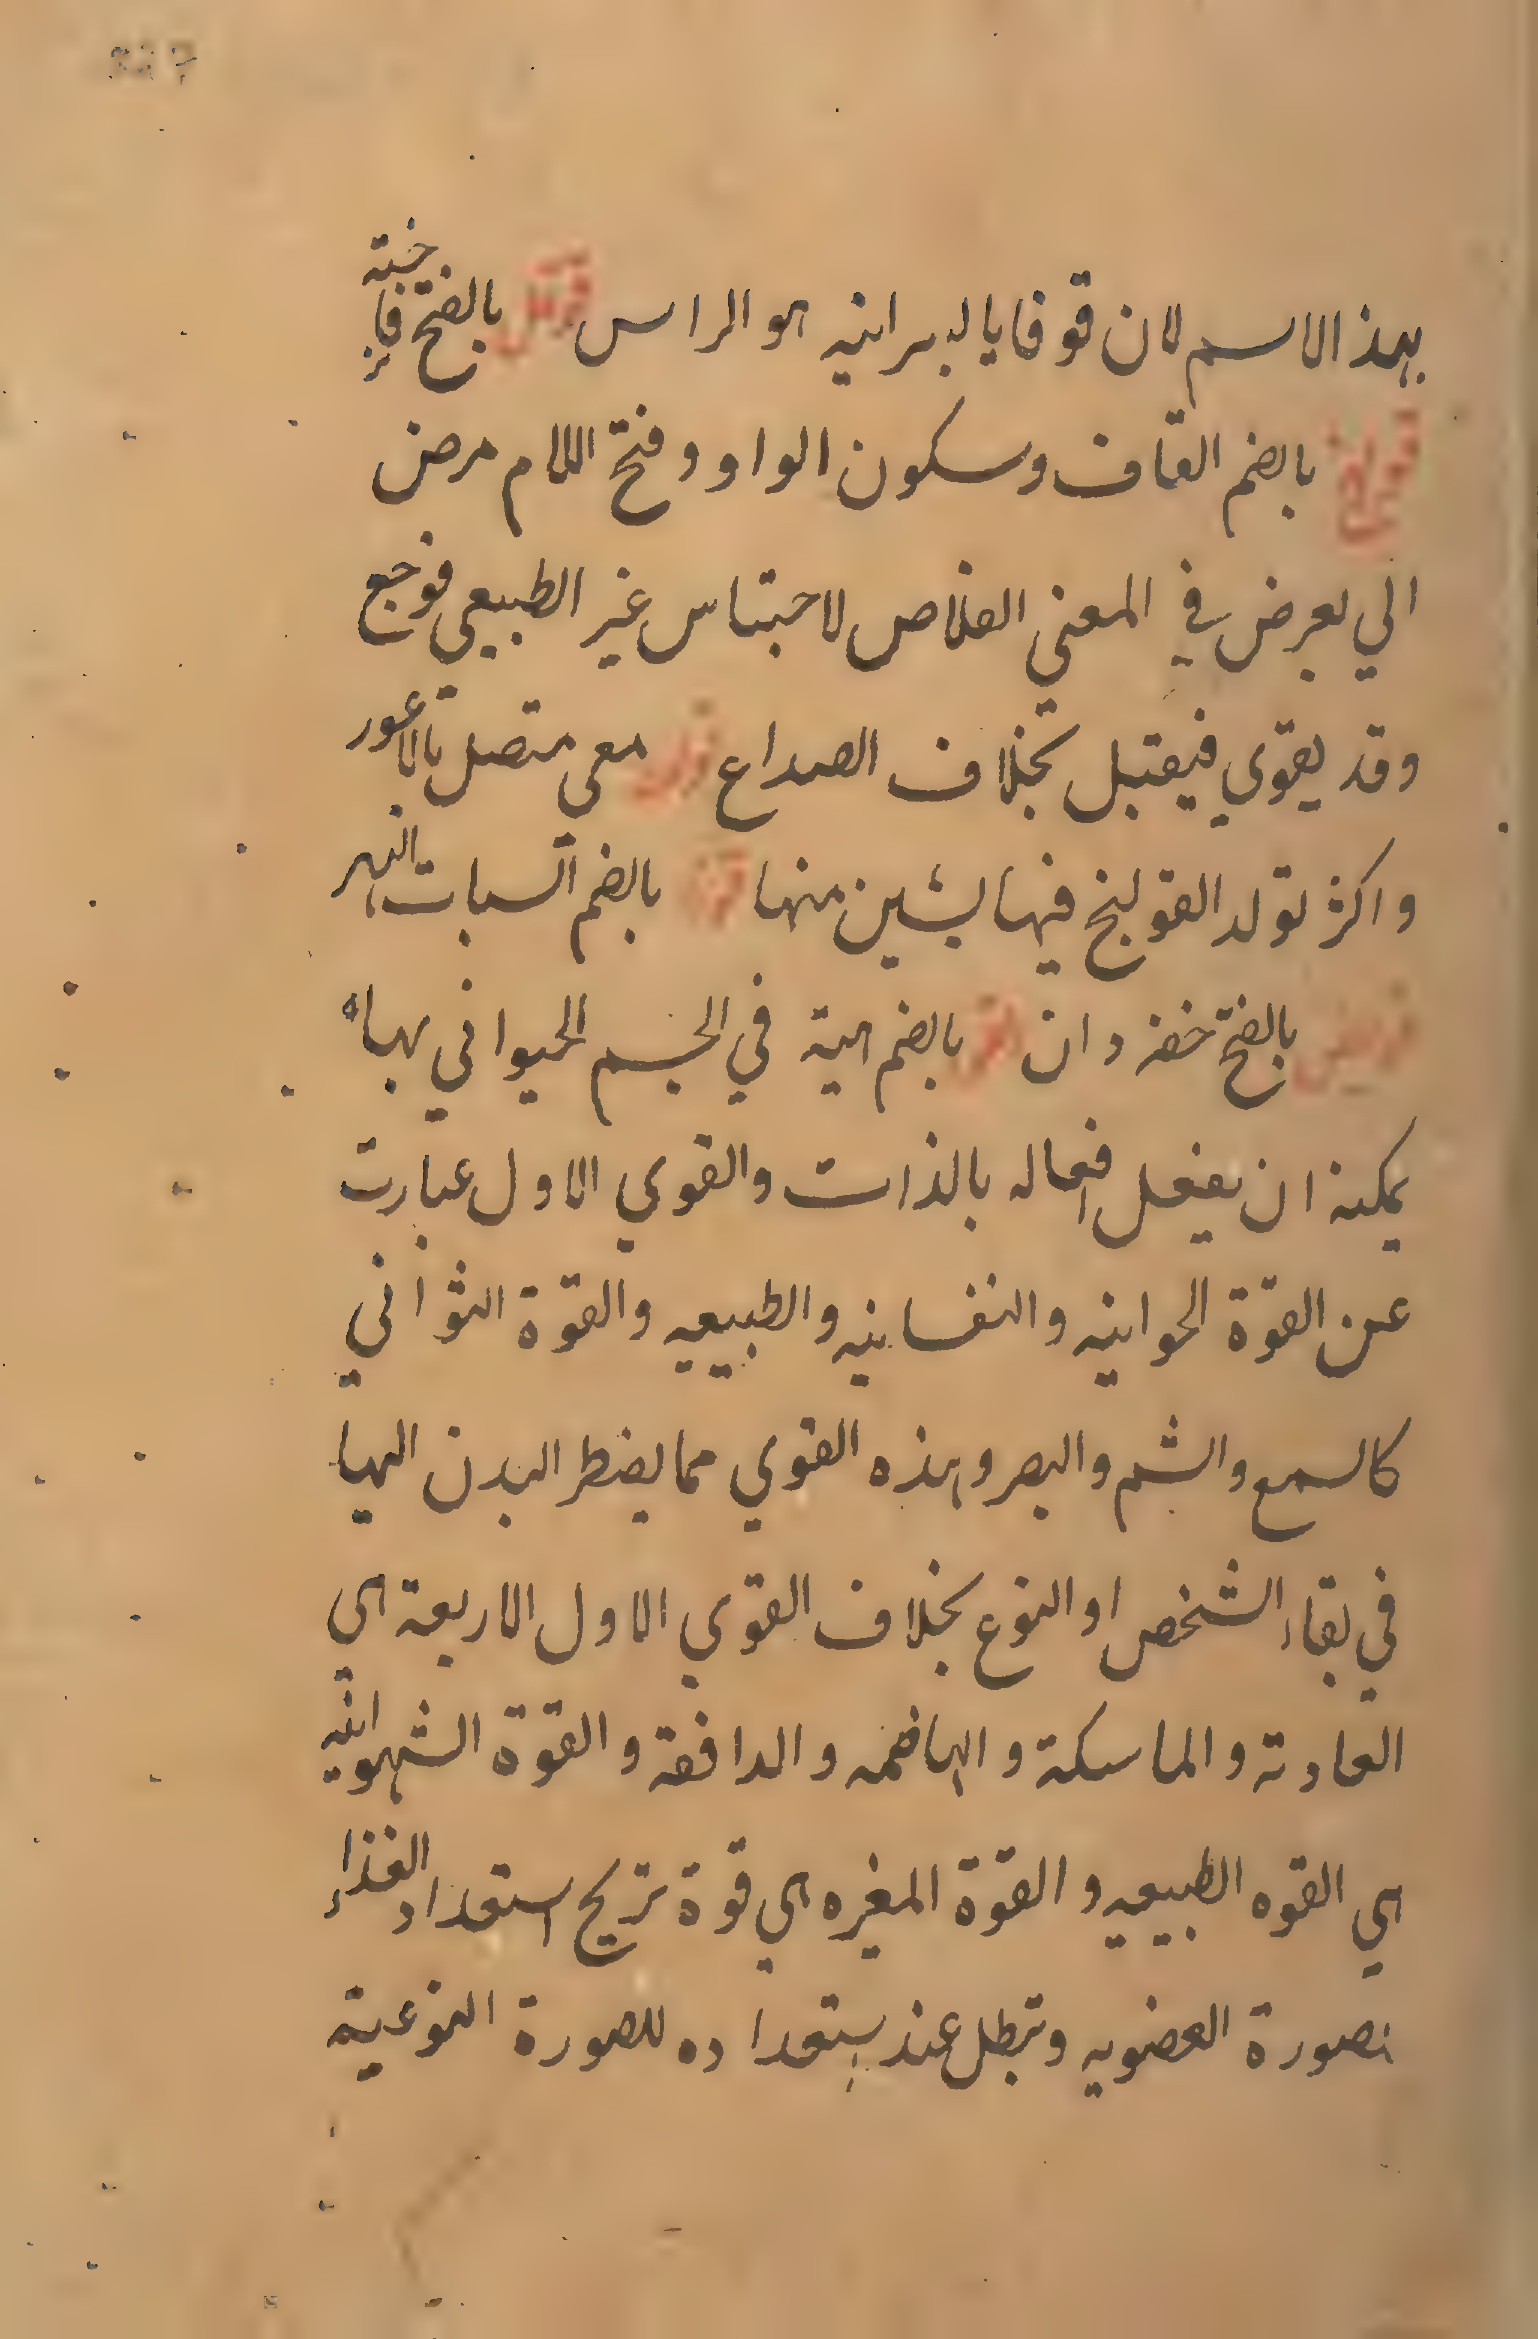 بهذا الاسم لان قوفا يا لبرانيه هو الراس بالفتح فاختة
قولنج بالضم القاف وسكون الواو وفتح اللام مرض
الي يعرض في المعني الغلاص لاحتباس غير الطبيعي فوجع
وقد يقوي فيقتل بخلاف الصداع معي متصل بالاعور
واكثر تولد القولنج فيها يشين منها بالضم السبات
بالفتح ان بالضم هية في الجسم الحيواني بها
يمكنه ان يفعل افعاله بالذات والقوي الاول عبارت
عن القوة الحوانيه والنفسانيه والطبيعيه والقوة الثواني
كالسمع والشم والبصر وهذه القوي مما يضطر البدن اليها
في بقاء الشخص او النوع بخلاف القوي الاول الاربعة هي
والماسكة والهاضمه والدافعة والقوة الشهوانيه
هي القوه الطبيعيه والقوة المغيره هي قوة استعداد الغذاء
بصورة العضويه وتبطل عند استعداده للصورة النوعية